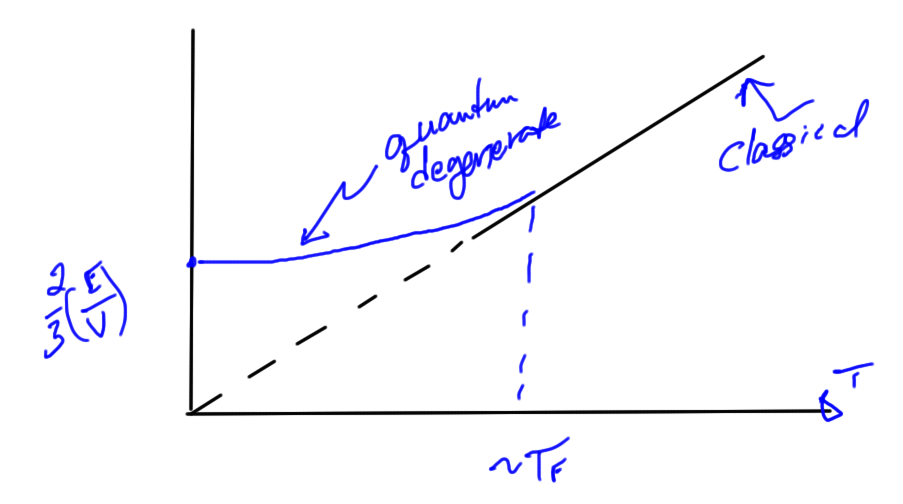 quantum
degenerate
Classical
2/3(E/V)
T
~T_F